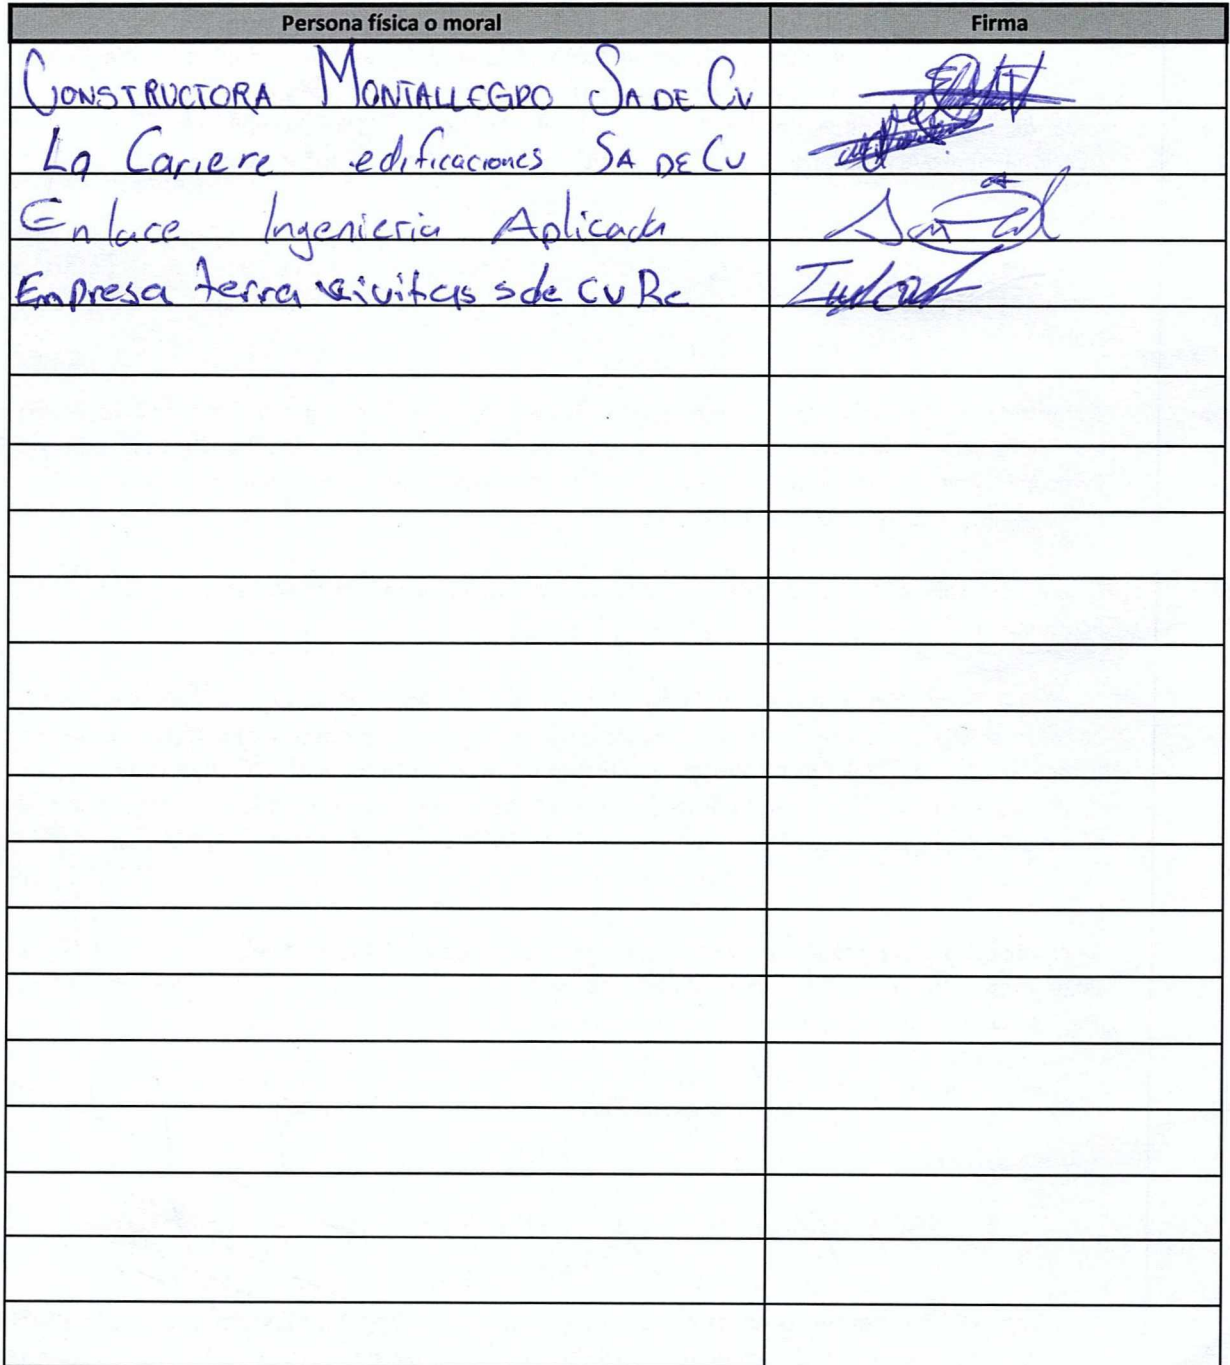 Persona física o moral Firma
CONSTRUCTORA MONTALLEGRO SA DE CV
La Cariere edificaciones SA DE CV
Enlace Ingenieria Aplicada
Empresa terra civitas s de CV RL